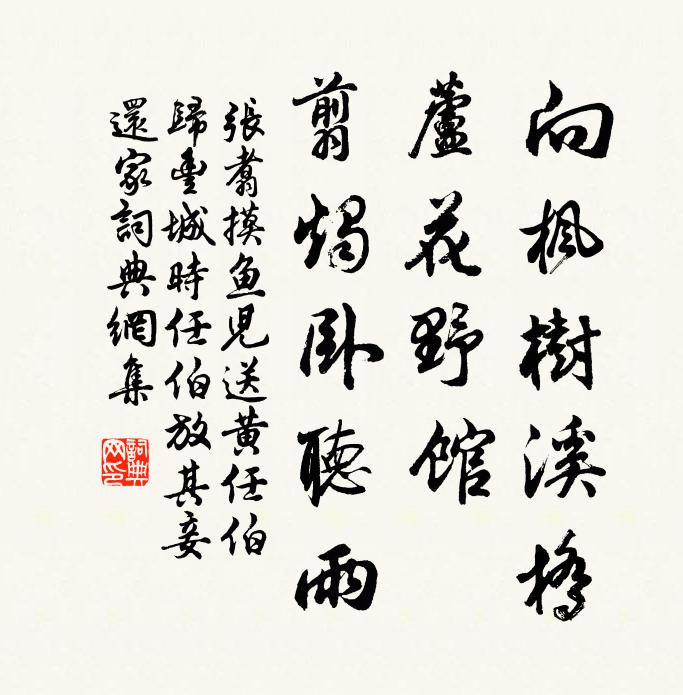 向楓樹溪橋
蘆花野館
翦燭臥聽雨
張翥摸魚兒送黃任伯
歸豊城時任伯放其妾
還家詞典網集
詞典
网印